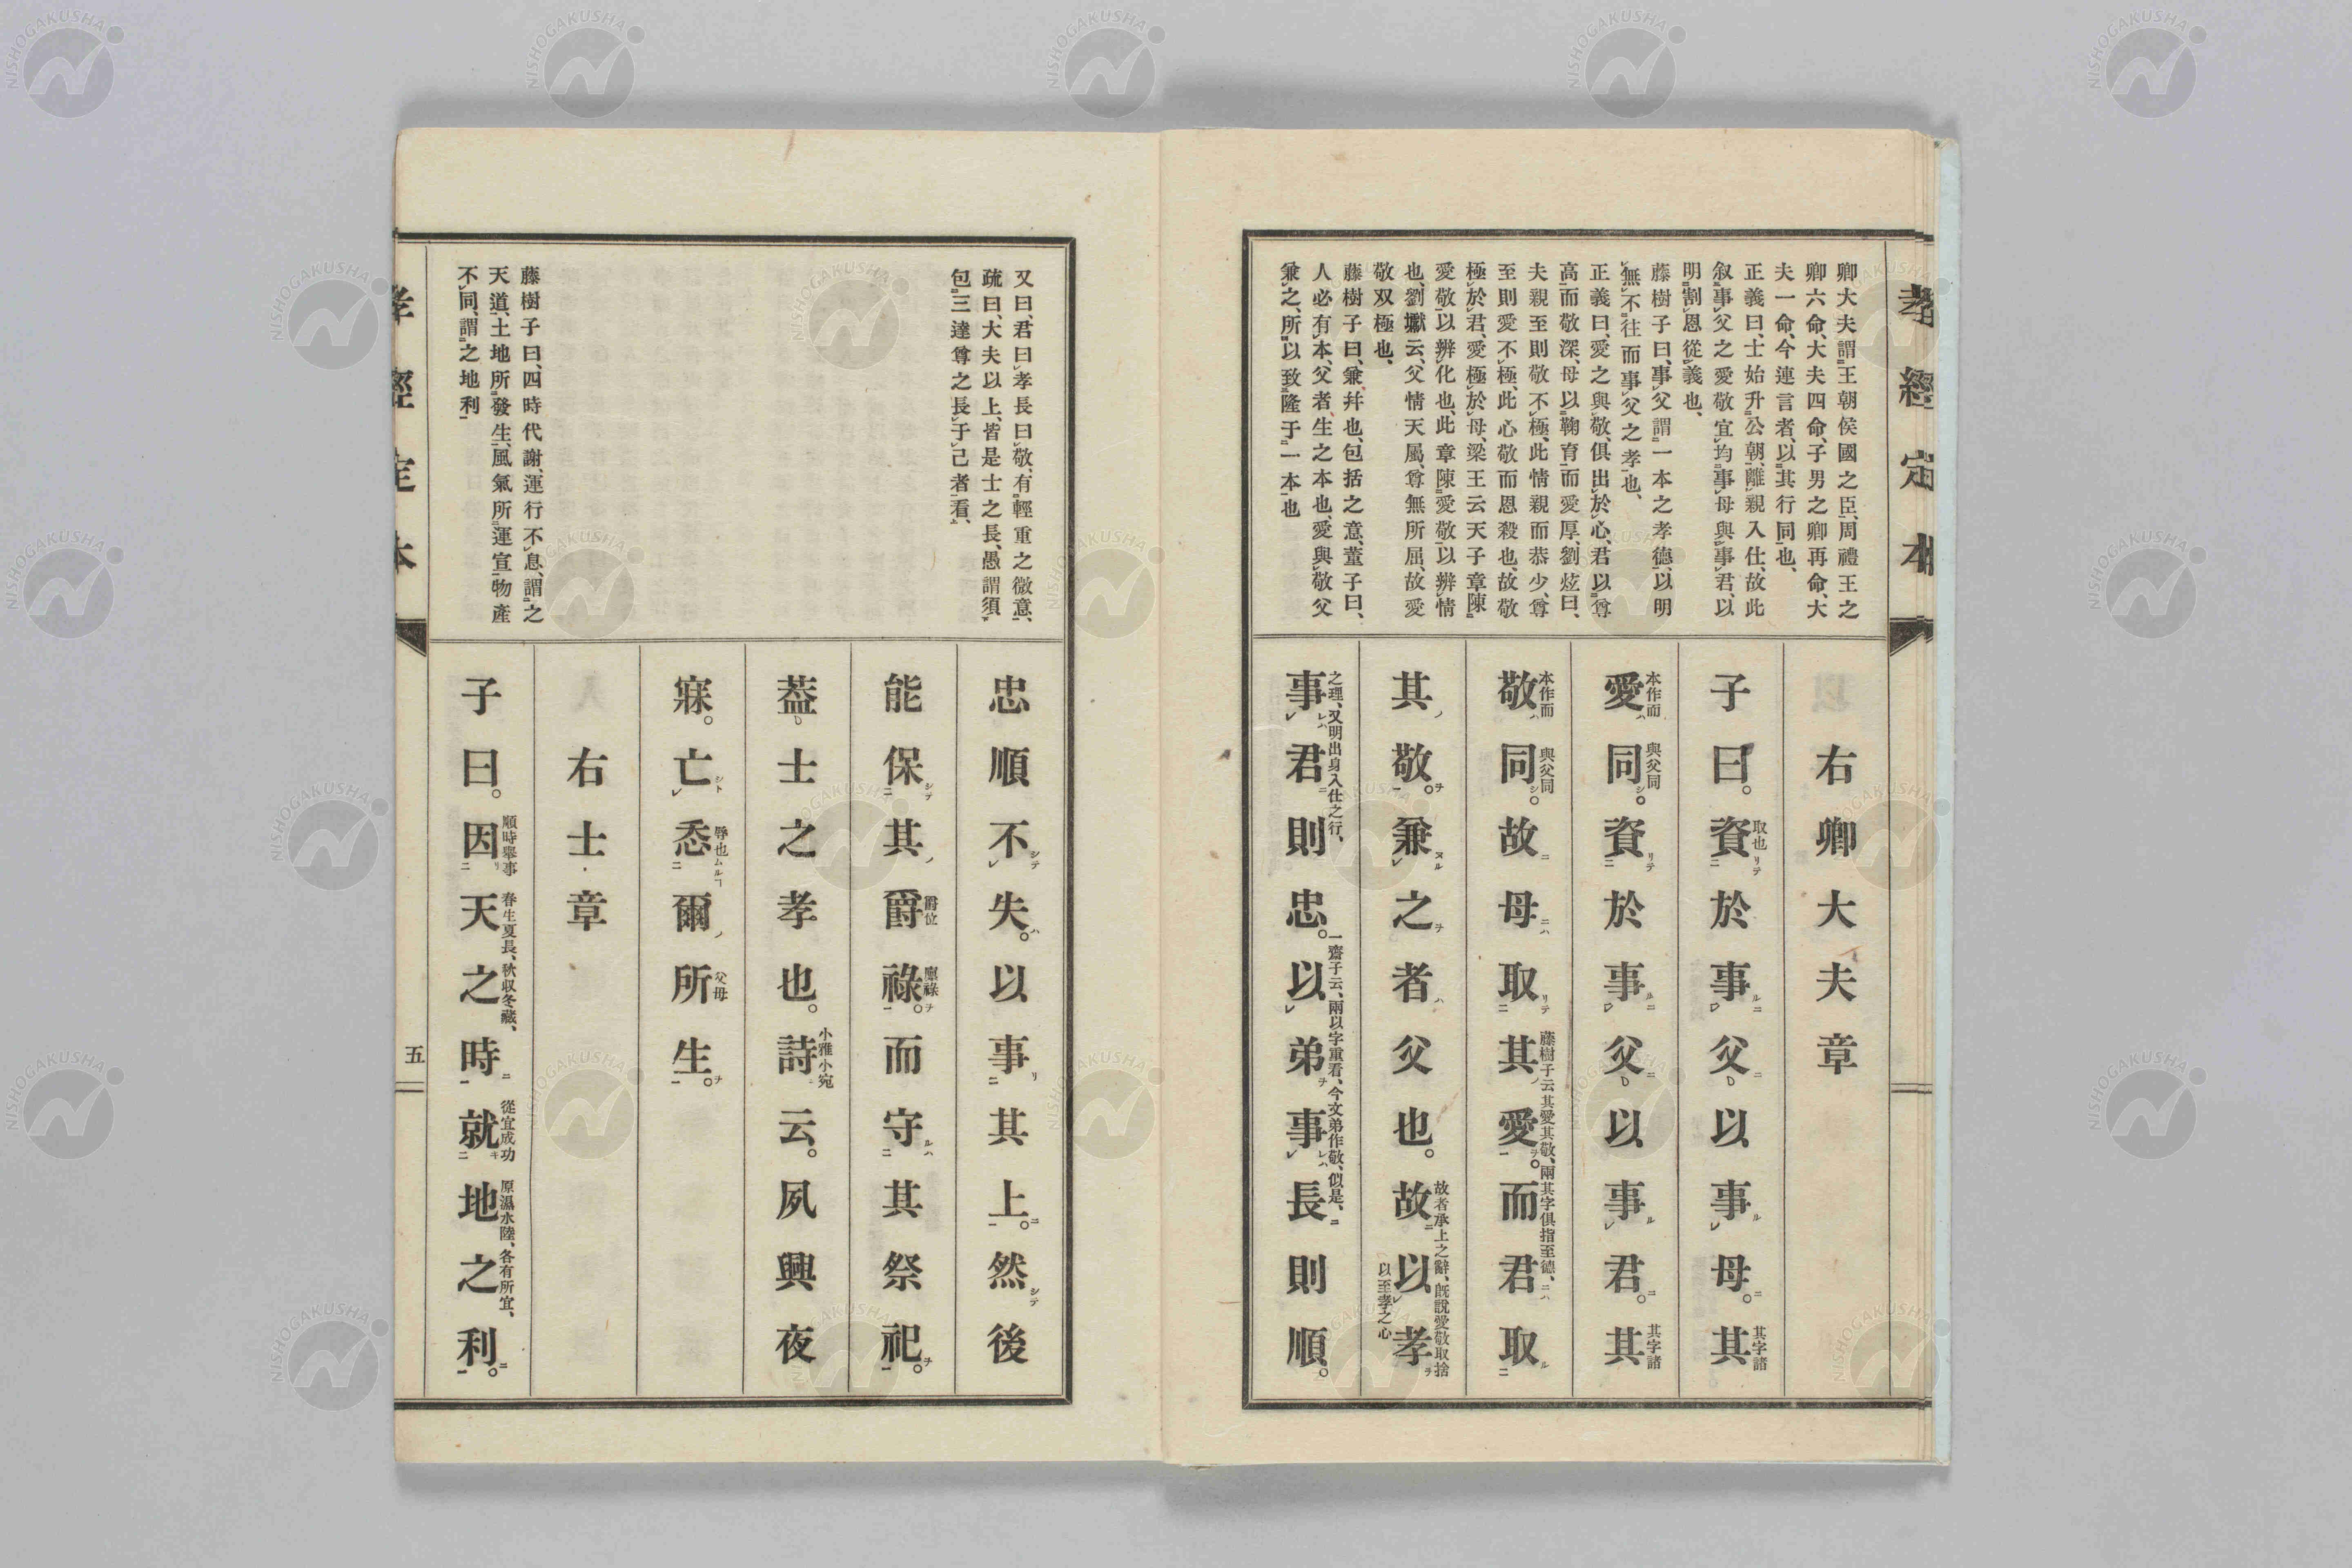 孝經定本
卿大夫、謂王朝侯國之臣、周禮王之
卿六命、大夫四命、子男之卿再命、大
夫一命、今連言者、以其行同也、
正義曰、士始升公朝、離親入仕、故此
叙事父之愛敬宜均事母與事君、以
明割恩從義也、
藤樹子曰、事父謂一本之孝德、以明
無不往而事父之孝也、
正義曰、愛之與敬、俱出於心、君以尊
高而敬深、母以鞠育而愛厚、劉炫曰、
夫親至則敬不極、此情親而恭少、尊
至則愛不極、此心敬而恩殺也、故敬
極於君、愛極於母、梁王云天子章陳
愛敬以辨化也、此章陳愛敬以辨情
也、劉瓛云、父情天屬、尊無所屈、故愛
敬双極也、
藤樹子曰、兼、幷也、包括之意、董子曰、
人必有本、父者、生之本也、愛與敬父
兼之、所以致隆于一本也
右卿大夫章
子曰。資取也リテ於事ルニ父ニ以事ル母ニ。其其字諸
愛本作而ハ同與父同シ。資リテ於事ルニ父ニ以事ル君ニ。其其字諸
敬本作而ハ同與父同シ。故ニ母ニハ取リテ其ノ藤樹子云其愛其敬、兩其字俱指至德、愛ヲ。而君ニハ取ル
其ノ敬ヲ。兼ヌル之ヲ者ハ父也。故ニ故者承上之辭、既說愛敬取捨以孝ヲ以至孝之心
之理、又明出身入仕之行、
事レハ君ニ則忠。以弟ヲ一齋子云、兩以字重看、今文弟作敬、似是、事レハ長ニ則順。
又曰、君曰孝長曰敬、有輕重之微意、
疏曰、大夫以上、皆是士之長、愚謂須
包三達尊之長于己者看、
藤樹子曰、四時代謝、運行不息、謂之
天道、土地所發生、風氣所運宣、物產
不同、謂之地利
忠順不シテ失ハ。以事リ其上ニ。然シテ後
能保シテ其ノ爵爵位祿廩祿ヲ。而守ルハ其祭祀ヲ。
葢士之孝也。詩小雅小宛云。夙興夜
寐。亡シト忝辱也ムルヿ爾ノ所父母生ヲ。
右士章
子曰。因順時舉事リ天之春生夏長、秋収冬藏、時ニ就從宜成功キ地之原濕水陸、各有所宜、利ニ。
孝經定本
五
NISHOGAKUSHA